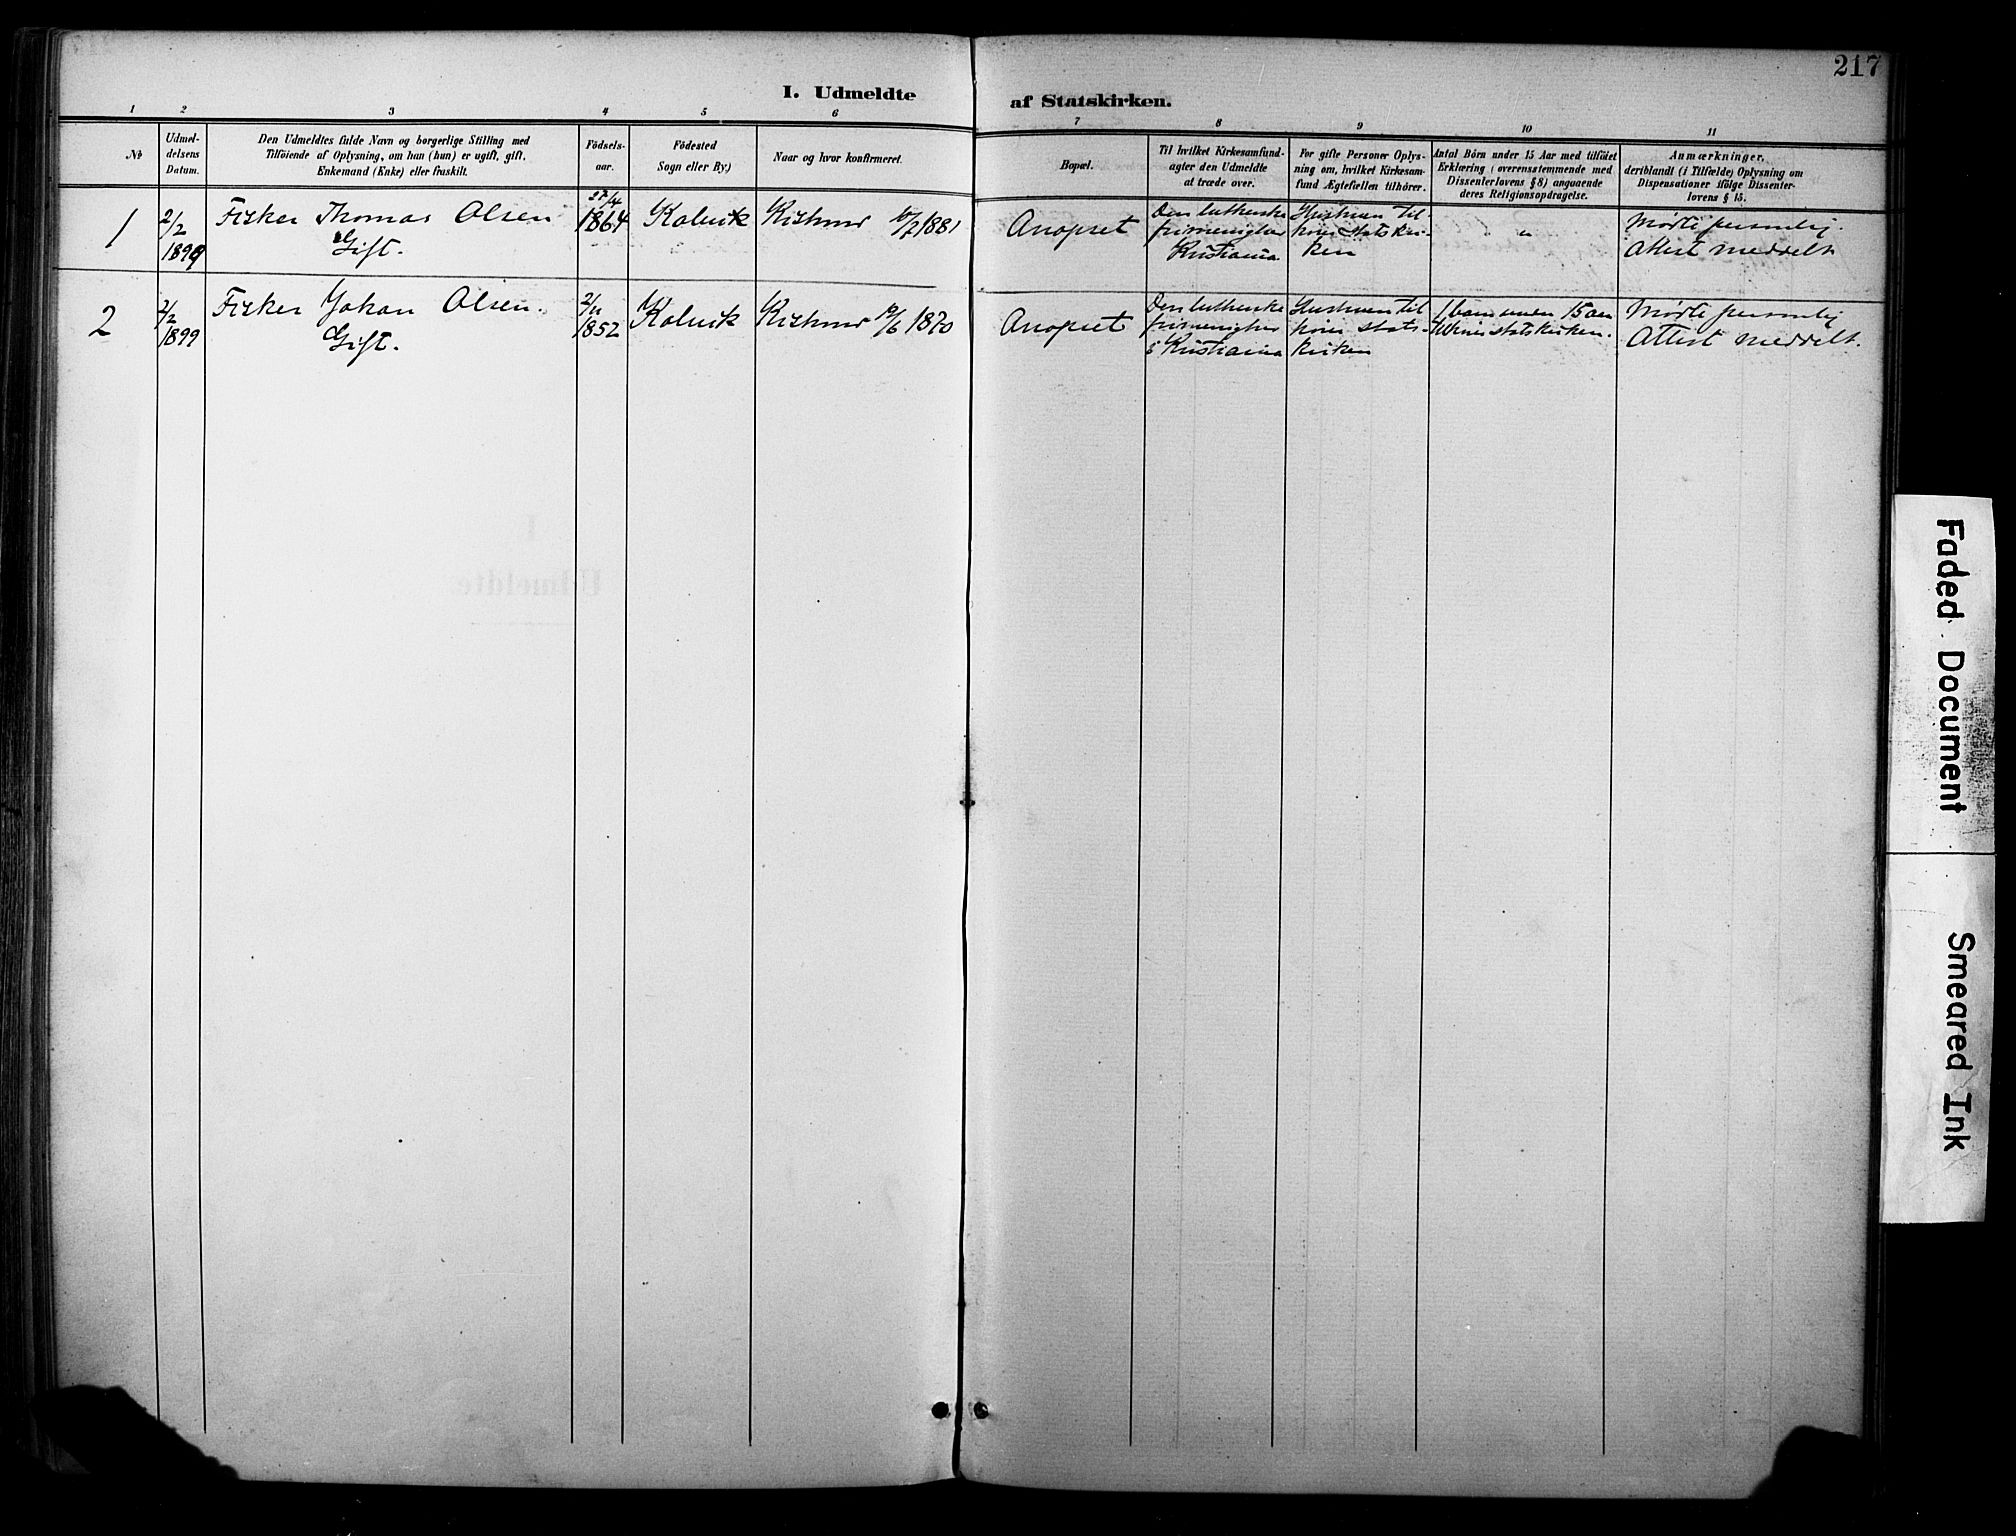 217
I. Udmeldte
af Statskirken.
1 2 3 4 5 6
7 8 9 10 11
№
Udmel-
delsens
Datum.
Den Udmeldtes fulde Navn og borgerlige Stilling med
Tilføiende af Oplysning, om han (hun) er ugift, gift,
Enkemand (Enke) eller fraskilt.
Fødsels-
aar.
Fødested
Sogn eller By)
Naar og hvor konfirmeret.
Bopæl.
Til hvilket Kirkesamfund-
agter den Udmeldte
at træde over.
For gifte Personer Oplys-
ning om, hvilket Kirkesam-
fund Ægtefællen tilhører.
Antal Børn under 15 Aar med tilføiet
Erklæring (overensstemmende med
Dissenterlovens § 8) angaaende
deres Religionsopdragelse.
Anmærkninger,
deriblandt (i Tilfælde) Oplysning om
Dispensationer ifölge Dissenter-
lovens § 15.
1
2/2
1899
Fisker Thomas Olsen
Gift.
27/4
1864
Kolvik
Kistrand
1881
Anopset
Den lutherske
frimenighed
Kristiania
Hustruen til-
hører Statskir-
ken
"
Mødte personlig.
Attest meddelt
2
2/2
1899
Fisker Johan Olsen.
Gift.
2/11
1852
Kolvik
Kistrand
1870
Anopset
Den lutherske
frimenighed
i Kristiania
Hustruen til
hører Stats-
kirken
1 barn under 15 aar
tilhører statskirken.
Mødte personlig
Attest meddelt.
Udmeldte.
Faded Document
Smeared Ink